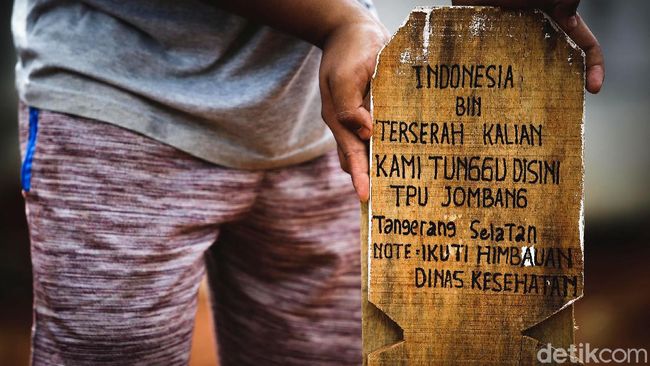 INDONESIA
BIN
TERSERAH KALIAN
KAMI TUNGGU DISINI
TPU JOMBANG
Tangerang Selatan
NOTE : IKUTI HIMBAUAN
DINAS KESEHATAN
detikcom